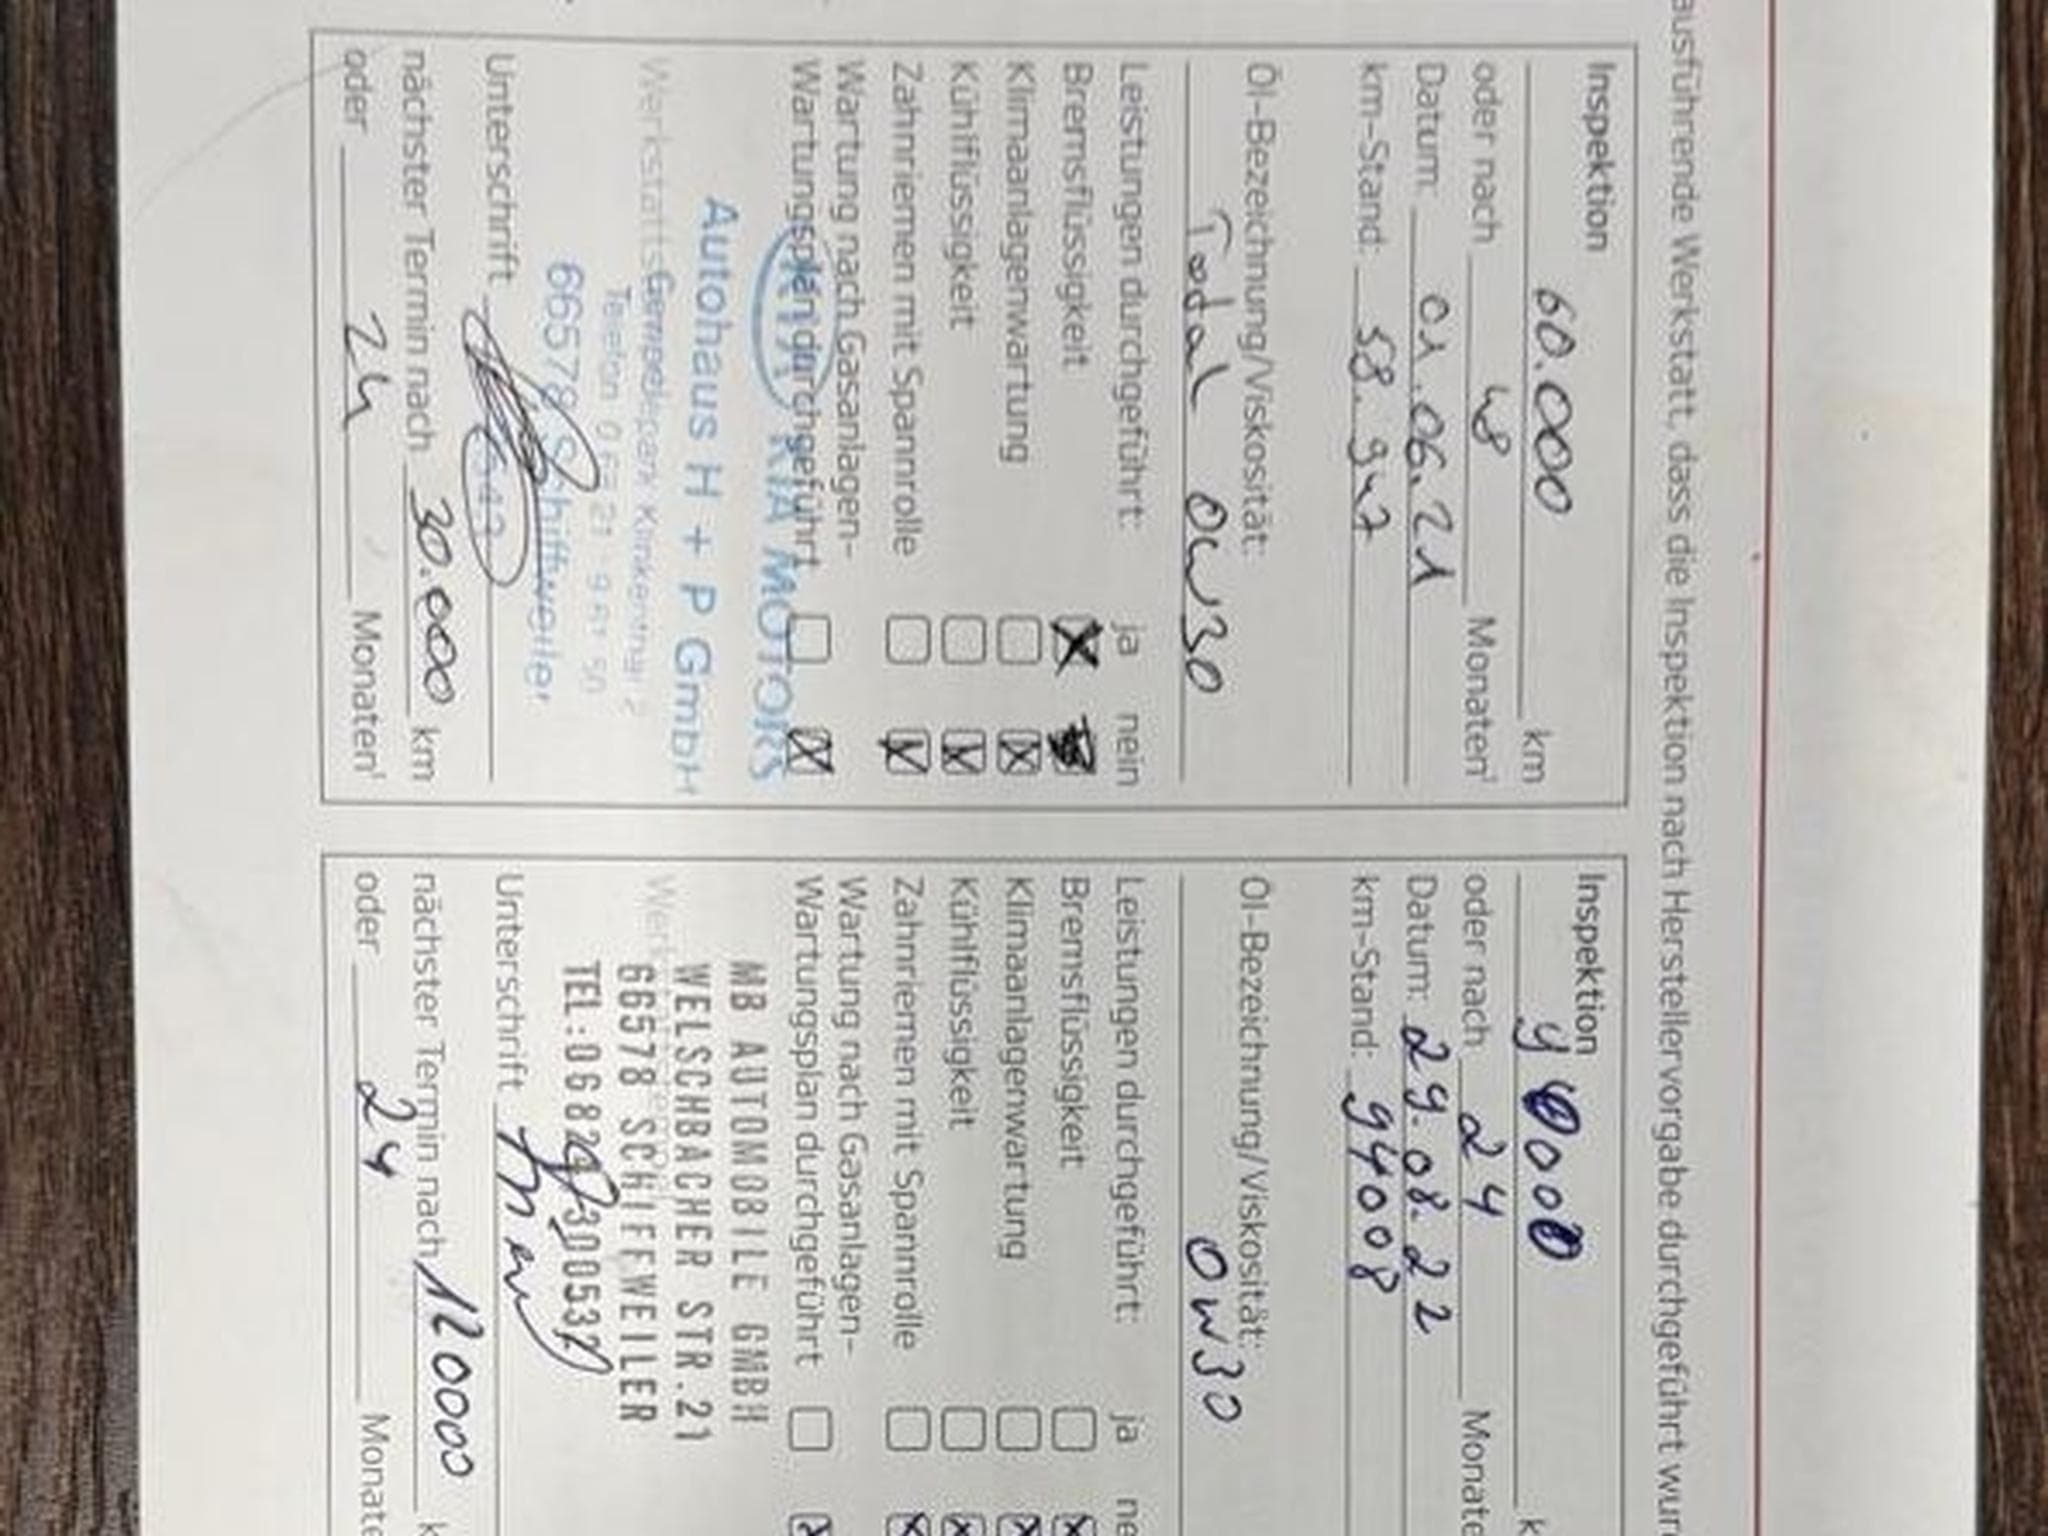 ausführende Werkstatt, dass die Inspektion nach Herstellervorgabe durchgeführt wur
Inspektion 60.000 km
oder nach 48 Monaten¹
Datum: 01.06.21
km-Stand: 58.947
Öl-Bezeichnung/Viskosität:
Todal 0W30
Leistungen durchgeführt: ja nein
Bremsflüssigkeit
Klimaanlagenwartung
Kühlflüssigkeit
Zahnriemen mit Spannrolle
Wartung nach Gasanlagen-
Wartungsplan durchgeführt
KIA MOTORS
Autohaus H + P GmbH
Gewerbepark Klinkenthal 2
Telefon
66578 Schiffweiler
Unterschrift
nächster Termin nach 30.000 km
oder 24 Monaten¹
Inspektion
oder nach 24 Monate
Datum: 29.08.22
km-Stand: 94008
Öl-Bezeichnung/Viskosität:
0W30
Leistungen durchgeführt: ja ne
Bremsflüssigkeit
Klimaanlagenwartung
Kühlflüssigkeit
Zahnriemen mit Spannrolle
Wartung nach Gasanlagen-
Wartungsplan durchgeführt
MB AUTOMOBILE GMBH
WELSCHBACHER STR.21
66578 SCHIFFWEILER
Unterschrift
nächster Termin nach 120000 k
oder 24 Monate